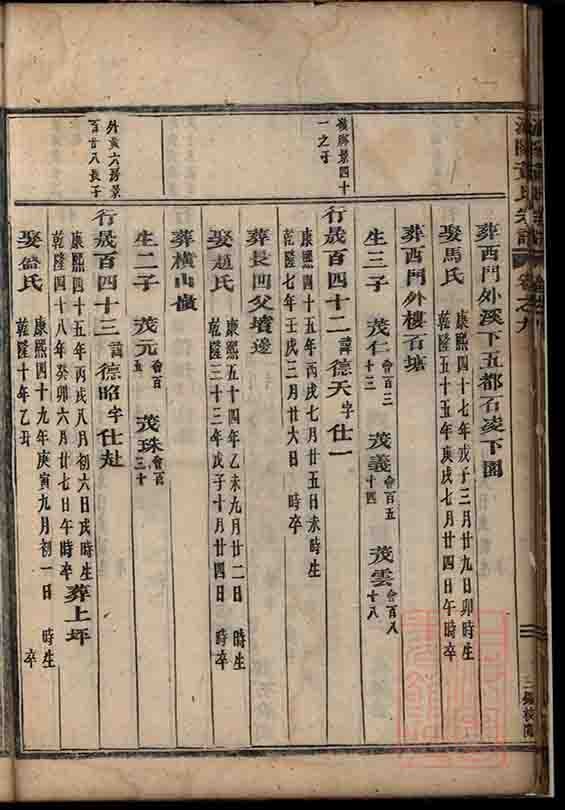 葬西門外溪下五都石凌下園
娶馬氏
康熙四十七年戊子三月廿九日卯時生
乾隆五十五年庚戌七月廿四日午時卒
葬西門外樓石塘
生三子 茂仁會百三十三 茂義會百五十四 茂雲會百八十八
橫
景四十一之子
行晟百四十二諱德天字仕一
康熙四十五年丙戌七月廿五日未時生
乾隆七年壬戌三月廿六日時卒
葬長回父墳邊
娶趙氏
康熙五十四年乙未九月廿二日時生
乾隆三十三年戊子十月廿四日時卒
葬橫山嶺
生二子 茂元會百五 茂珠會百三十
外黃六房景百廿八長子
行晟百四十三諱德昭字仕赴
康熙四十五年丙戌八月初六日戌時生
乾隆四十八年癸卯六月廿七日午時卒
葬上坪
娶益氏
康熙四十九年庚寅九月初一日時生
乾隆十年乙丑 卒
黃氏宗譜
卷之九